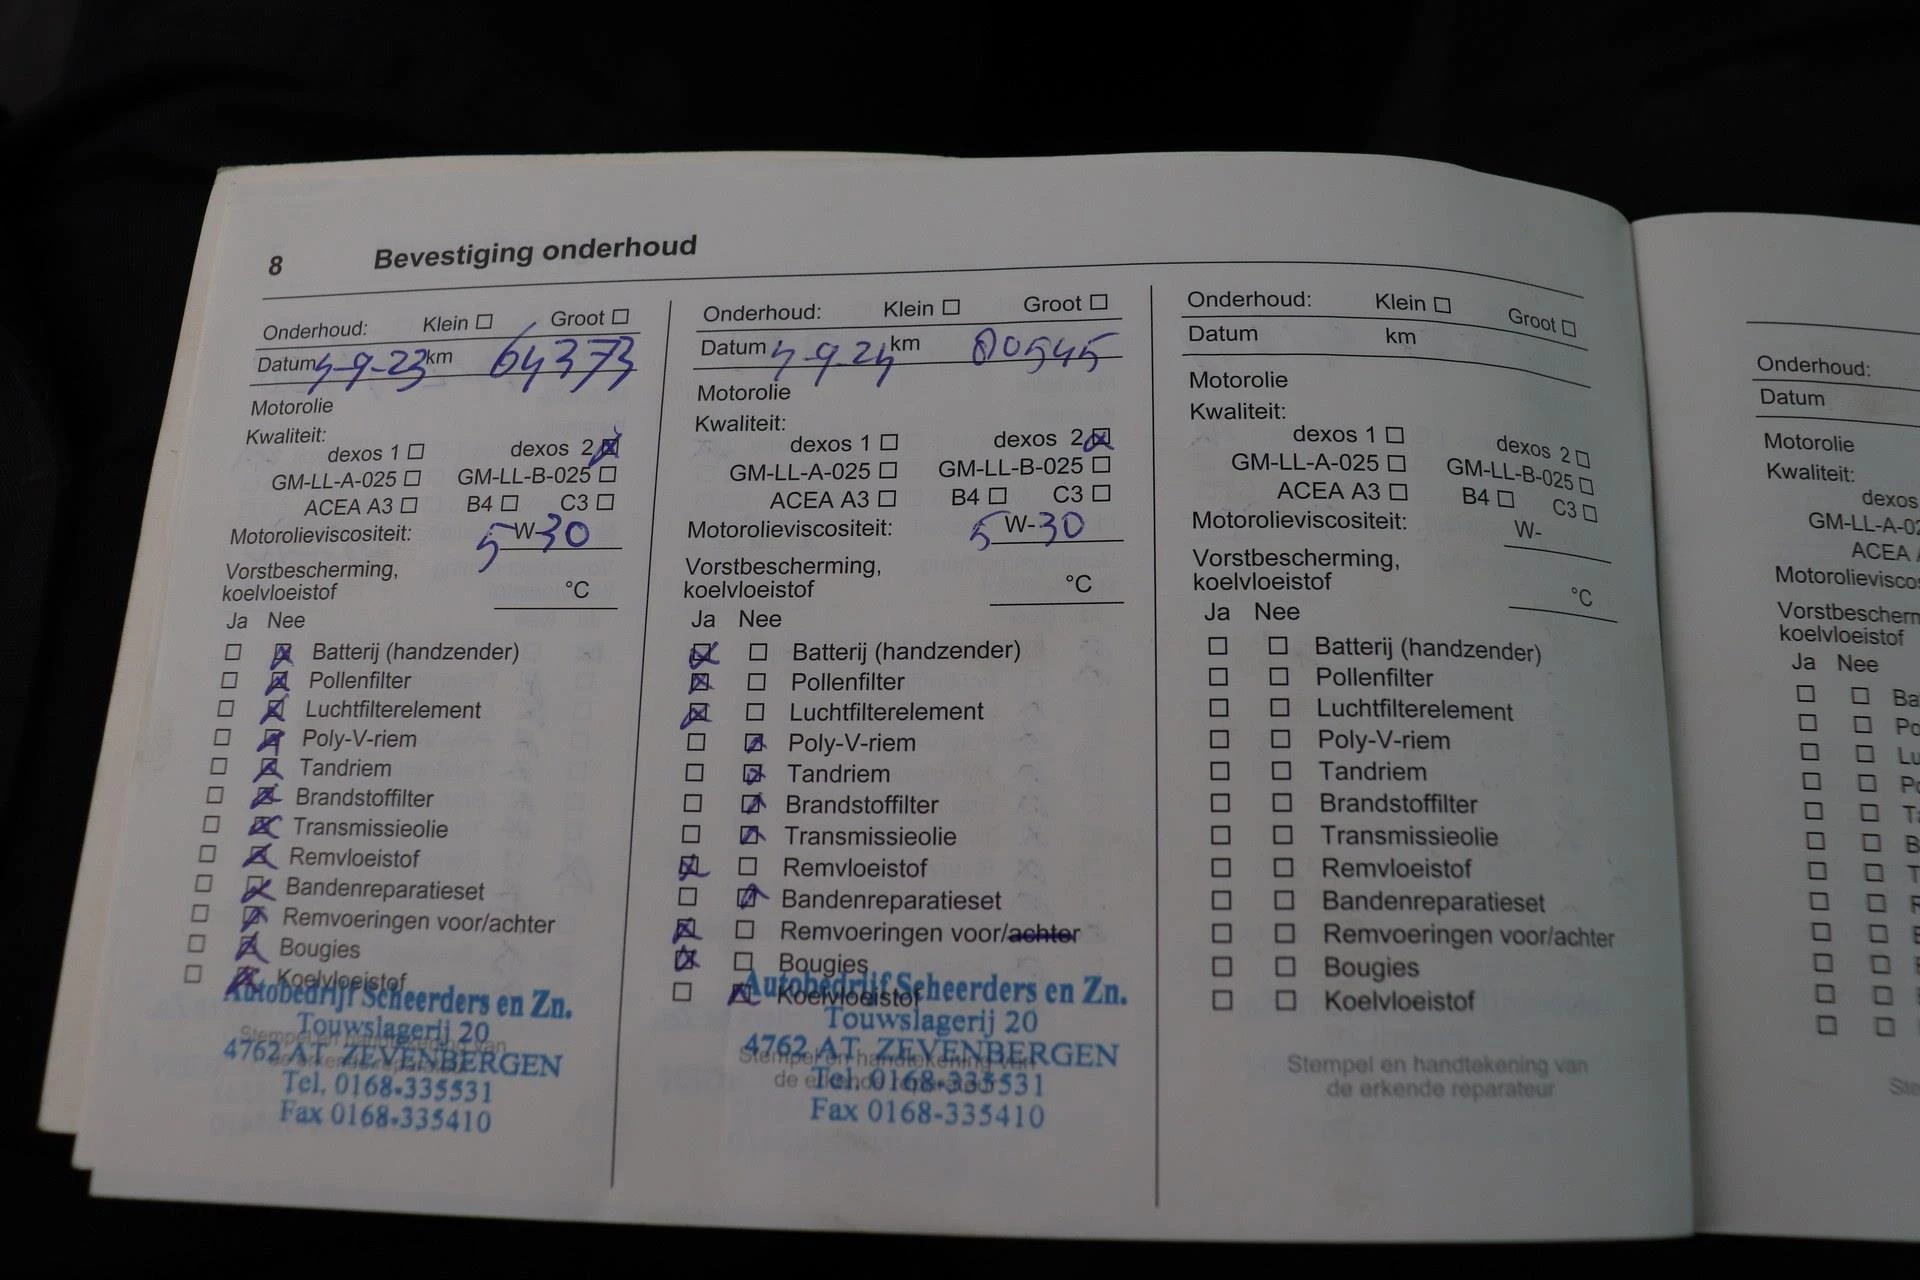 8 Bevestiging onderhoud
Onderhoud: Klein ☐ Groot ☐
Datum 4-9-23 km 64373
Motorolie
Kwaliteit:
dexos 1 ☐ dexos 2 ☒
GM-LL-A-025 ☐ GM-LL-B-025 ☐
ACEA A3 ☐ B4 ☐ C3 ☐
Motorolieviscositeit: 5 W-30
Vorstbescherming,
koelvloeistof °C
Ja Nee
☐ ☒ Batterij (handzender)
☐ ☒ Pollenfilter
☐ ☒ Luchtfilterelement
☐ ☒ Poly-V-riem
☐ ☒ Tandriem
☐ ☒ Brandstoffilter
☐ ☒ Transmissieolie
☐ ☒ Remvloeistof
☐ ☒ Bandenreparatieset
☐ ☒ Remvoeringen voor/achter
☐ ☒ Bougies
☐ ☒ Koelvloeistof
Autobedrijf Scheerders en Zn.
Touwslagerij 20
Stempel en handtekening van
4762 AT ZEVENBERGEN
de erkende reparateur
Tel. 0168-335531
Fax 0168-335410
Onderhoud: Klein ☐ Groot ☐
Datum 4-9-24 km 80545
Motorolie
Kwaliteit:
dexos 1 ☐ dexos 2 ☒
GM-LL-A-025 ☐ GM-LL-B-025 ☐
ACEA A3 ☐ B4 ☐ C3 ☐
Motorolieviscositeit: 5 W-30
Vorstbescherming,
koelvloeistof °C
Ja Nee
☒ ☐ Batterij (handzender)
☒ ☐ Pollenfilter
☒ ☐ Luchtfilterelement
☐ ☒ Poly-V-riem
☐ ☒ Tandriem
☐ ☒ Brandstoffilter
☐ ☒ Transmissieolie
☒ ☐ Remvloeistof
☐ ☒ Bandenreparatieset
☒ ☐ Remvoeringen voor/achter
☒ ☐ Bougies
☐ ☒ Koelvloeistof
Autobedrijf Scheerders en Zn.
Touwslagerij 20
4762 AT ZEVENBERGEN
Stempel en handtekening van
de erkende reparateur
Tel. 0168-335531
Fax 0168-335410
Onderhoud: Klein ☐ Groot ☐
Datum km
Motorolie
Kwaliteit:
dexos 1 ☐ dexos 2 ☐
GM-LL-A-025 ☐ GM-LL-B-025 ☐
ACEA A3 ☐ B4 ☐ C3 ☐
Motorolieviscositeit: W-
Vorstbescherming,
koelvloeistof °C
Ja Nee
☐ ☐ Batterij (handzender)
☐ ☐ Pollenfilter
☐ ☐ Luchtfilterelement
☐ ☐ Poly-V-riem
☐ ☐ Tandriem
☐ ☐ Brandstoffilter
☐ ☐ Transmissieolie
☐ ☐ Remvloeistof
☐ ☐ Bandenreparatieset
☐ ☐ Remvoeringen voor/achter
☐ ☐ Bougies
☐ ☐ Koelvloeistof
Stempel en handtekening van
de erkende reparateur
Onderhoud:
Datum
Motorolie
Kwaliteit:
dexos
GM-LL-A-02
ACEA
Motorolievisco
Vorstbescherm
koelvloeistof
Ja Nee
☐ ☐ Ba
☐ ☐ Po
☐ ☐ Lu
☐ ☐ Po
☐ ☐ Ta
☐ ☐ B
☐ ☐ T
☐ ☐ R
☐ ☐
☐ ☐
☐ ☐
☐ ☐
Ste